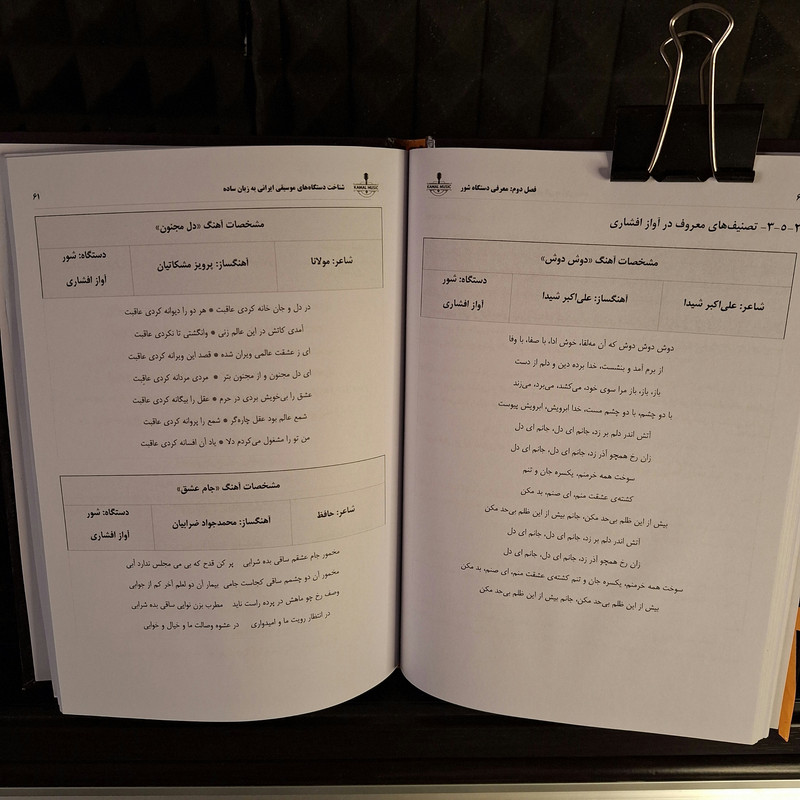 فصل دوم: معرفی دستگاه شور
KAMAL MUSIC
۲-۵-۳- تصنیف‌های معروف در آواز افشاری
مشخصات آهنگ «دوش دوش»
شاعر: علی‌اکبر شیدا
آهنگساز: علی‌اکبر شیدا
دستگاه: شور
آواز افشاری
دوش دوش دوش که آن مه‌لقا، خوش ادا، با صفا، با وفا
از برم آمد و بنشست، خدا برده دین و دلم از دست
باز، باز، باز مرا سوی خود، می‌کشد، می‌برد، می‌زند
با دو چشم، با دو چشم مست، خدا ابرویش، ابرویش پیوست
آتش اندر دلم بر زد، جانم ای دل، جانم ای دل
زان رخ همچو آذر زد، جانم ای دل، جانم ای دل
سوخت همه خرمنم، یکسره جان و تنم
کشته‌ی عشقت منم، ای صنم، بد مکن
بیش از این ظلم بی‌حد مکن، جانم بیش از این ظلم بی‌حد مکن
آتش اندر دلم بر زد، جانم ای دل، جانم ای دل
زان رخ همچو آذر زد، جانم ای دل، جانم ای دل
سوخت همه خرمنم، یکسره جان و تنم کشته‌ی عشقت منم، ای صنم، بد مکن
بیش از این ظلم بی‌حد مکن، جانم بیش از این ظلم بی‌حد مکن
KAMAL MUSIC
شناخت دستگاه‌های موسیقی ایرانی به زبان ساده
۶۱
مشخصات آهنگ «دل مجنون»
شاعر: مولانا
آهنگساز: پرویز مشکاتیان
دستگاه: شور
آواز افشاری
در دل و جان خانه کردی عاقبت * هر دو را دیوانه کردی عاقبت
آمدی کاتش در این عالم زنی * وانگشتی تا نکردی عاقبت
ای ز عشقت عالمی ویران شده * قصد این ویرانه کردی عاقبت
ای دل مجنون و از مجنون بتر * مردی مردانه کردی عاقبت
عشق را بی‌خویش بردی در حرم * عقل را بیگانه کردی عاقبت
شمع عالم بود عقل چاره‌گر * شمع را پروانه کردی عاقبت
من تو را مشغول می‌کردم دلا * یاد آن افسانه کردی عاقبت
مشخصات آهنگ «جام عشق»
شاعر: حافظ
آهنگساز: محمدجواد ضرابیان
دستگاه: شور
آواز افشاری
مخمور جام عشقم ساقی بده شرابی پر کن قدح که بی می مجلس ندارد آبی
مخمور آن دو چشمم ساقی کجاست جامی بیمار آن دو لعلم آخر کم از جوابی
وصف رخ چو ماهش در پرده راست ناید مطرب بزن نوایی ساقی بده شرابی
در انتظار رویت ما و امیدواری در عشوه وصالت ما و خیال و خوابی